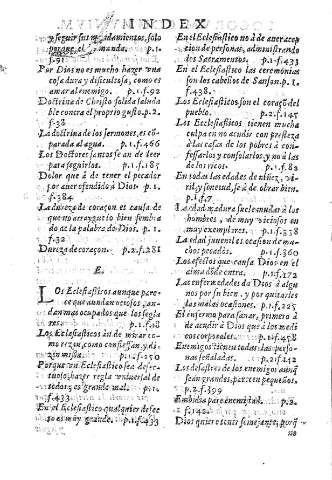 INDEX
y seguir sus mãdamientos, solo
porque el manda. p.1.
f.91
Por Dios no es mucho hazer vna
cosa dura y dificultosa, como es
amar al enemigo. p.1.f.92
Doctrina de Christo solida saluda
ble contra el proprio gusto. p.2.
f.38
La doctrina de los sermones, es cõ-
parada al agua. p.1.f.466
Los Doctores santos se an de leer
para seguirlos. p.1.f.185
Dolor que à de tener el pecador
por auer ofendido à Dios p.1.
f.384
La dureza de coraçon es causa de
que no arraygue io bien sembra
do at la palabra do Dios. p.1.
f.32
Dureza de coraçon. p.2.f.281
E.
LOs Eclesiasticos aunque pare-
ce que aundan ociosos, an-
dan mas ocupados que los segla
res. p.1.f.18
Los Eclesiasticos àn de mirar co-
mo rezan, como consiegran, y di-
zen missa. p.1.f.250
Porque vn Eclesiastico sea defe-
tuoso, hazer regla vniuersal de
todos, es grande mal. p.1.
f.433
En el Eclesiastico qualquier defec
to es muy grande. p.1.f.433
En el Eclesiastico no à de auer acep
cion de personas, administrando
dos Sacramentos. p.1.f.433
En el Eclesiastico las ceremonias
son los cabellos de Sanson. p.1.
f.438.
Los Eclesiasticos son el coraçõ del
pueblo. p.2.f.145
Los Eclesiasticos tienen mucha
culpa en no acudir con presteza
à las casas de los pobres à con-
fessarlos y consolarlos, y no à las
de los ricos. p.1.f.82
En todas las edades de niñez, vi-
ril, y senetud, se à de obrar bien.
p.1.f.7
La edad madura suele mudar à los
hombres, de muy viciosos en
muy exemplares. p.1.f.378
La edad juuenil es ocasion de mu-
chos pecados. p.1.f.360
Los efectos que causa Dios en el
alma donde entra. p.1.f.172
Las enfermedades da Dios à algu
nos por su bien, y por quitarles
las malas ocasiones. p.1.f.225
El enfermo para sanar, primero à
de acudir à Dios que à los medi
cos corporales. p.1.f.458
Enemigos tienen todas las perso-
nas señaladas. p.2.f.242
Los desastres de los enemigos aunq̃
sean grandes, parecen pequeños.
p.2.f.399
Embidia pare enemistad. p.2.
f.142.
Dios quiere tener semejante, porq̃